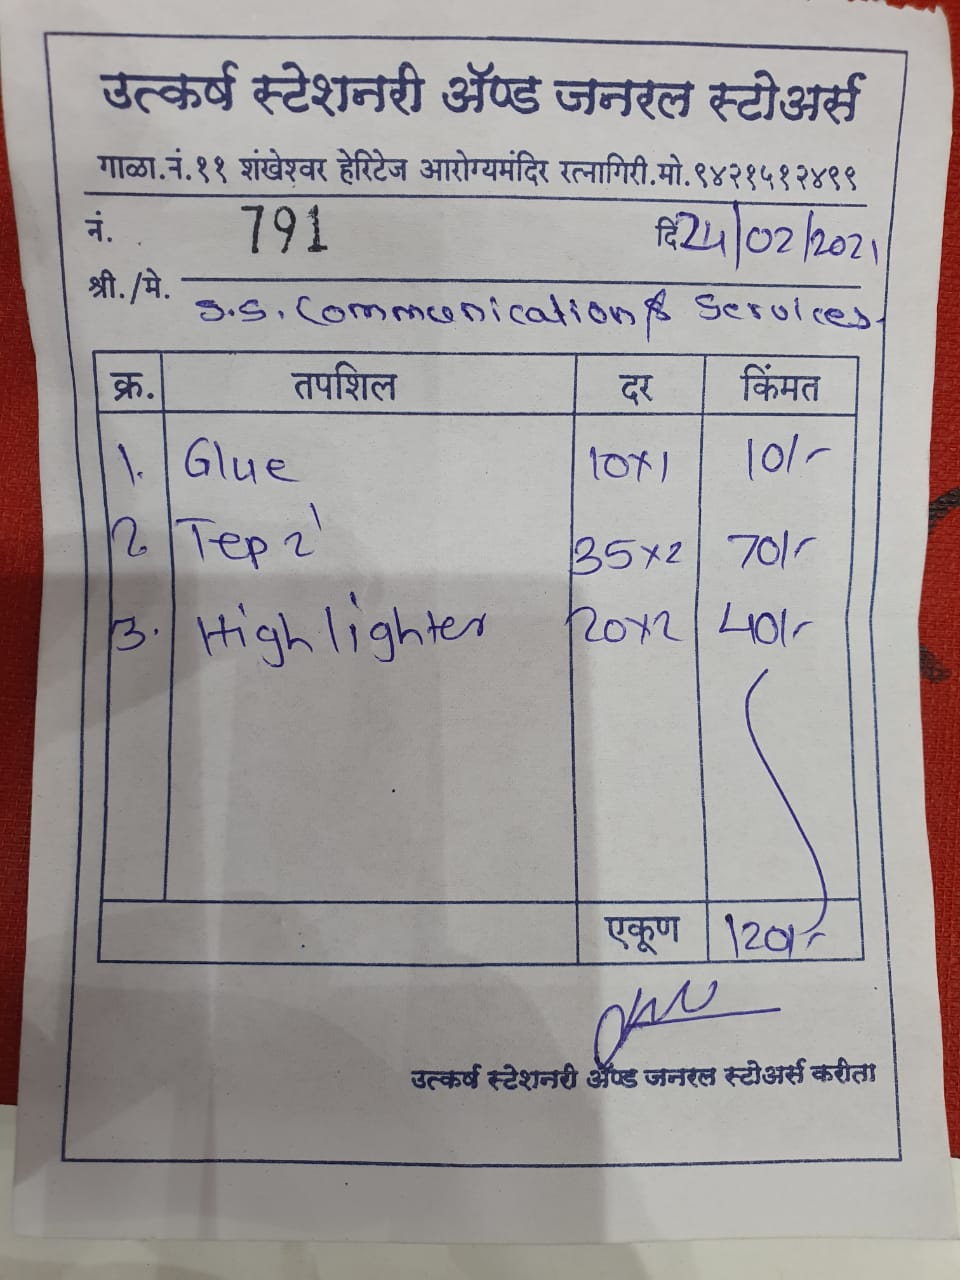 उत्कर्ष स्टेशनरी ॲण्ड जनरल स्टोअर्स
गाळा.नं.११ शंखेश्वर हेरिटेज आरोग्यमंदिर रत्नागिरी.मो.९४२१५१२४९९
नं. 791 दि 24/02/2021
श्री./मे. S.S. Communication & Services.
क्र. तपशिल दर किंमत
1. Glue 10x1 10/-
2 Tep 2' 35x2 70/-
3. High lighter 20x2 40/-
एकूण 120/-
उत्कर्ष स्टेशनरी ॲण्ड जनरल स्टोअर्स करीता